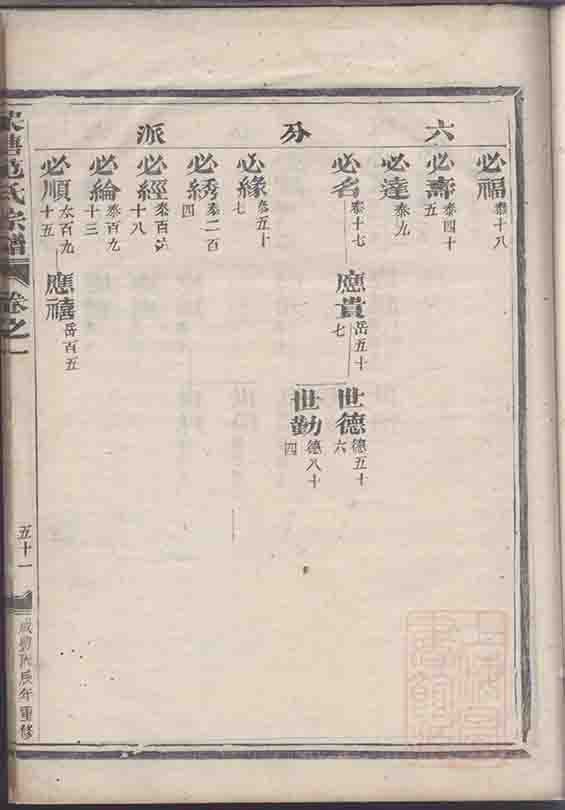 六分派
必福 泰十八
必壽 泰四十五
必達 泰九
必名 泰十七
應貴 岳五十七
世德 德五十六
世勸 德八十四
必緣 泰五十七
必綉 泰二百四
必經 泰百六十八
必綸 泰百九十三
必順 泰百九十五
應禧 岳百五
范氏宗譜
卷之一
五十一
咸豐戊辰年重修